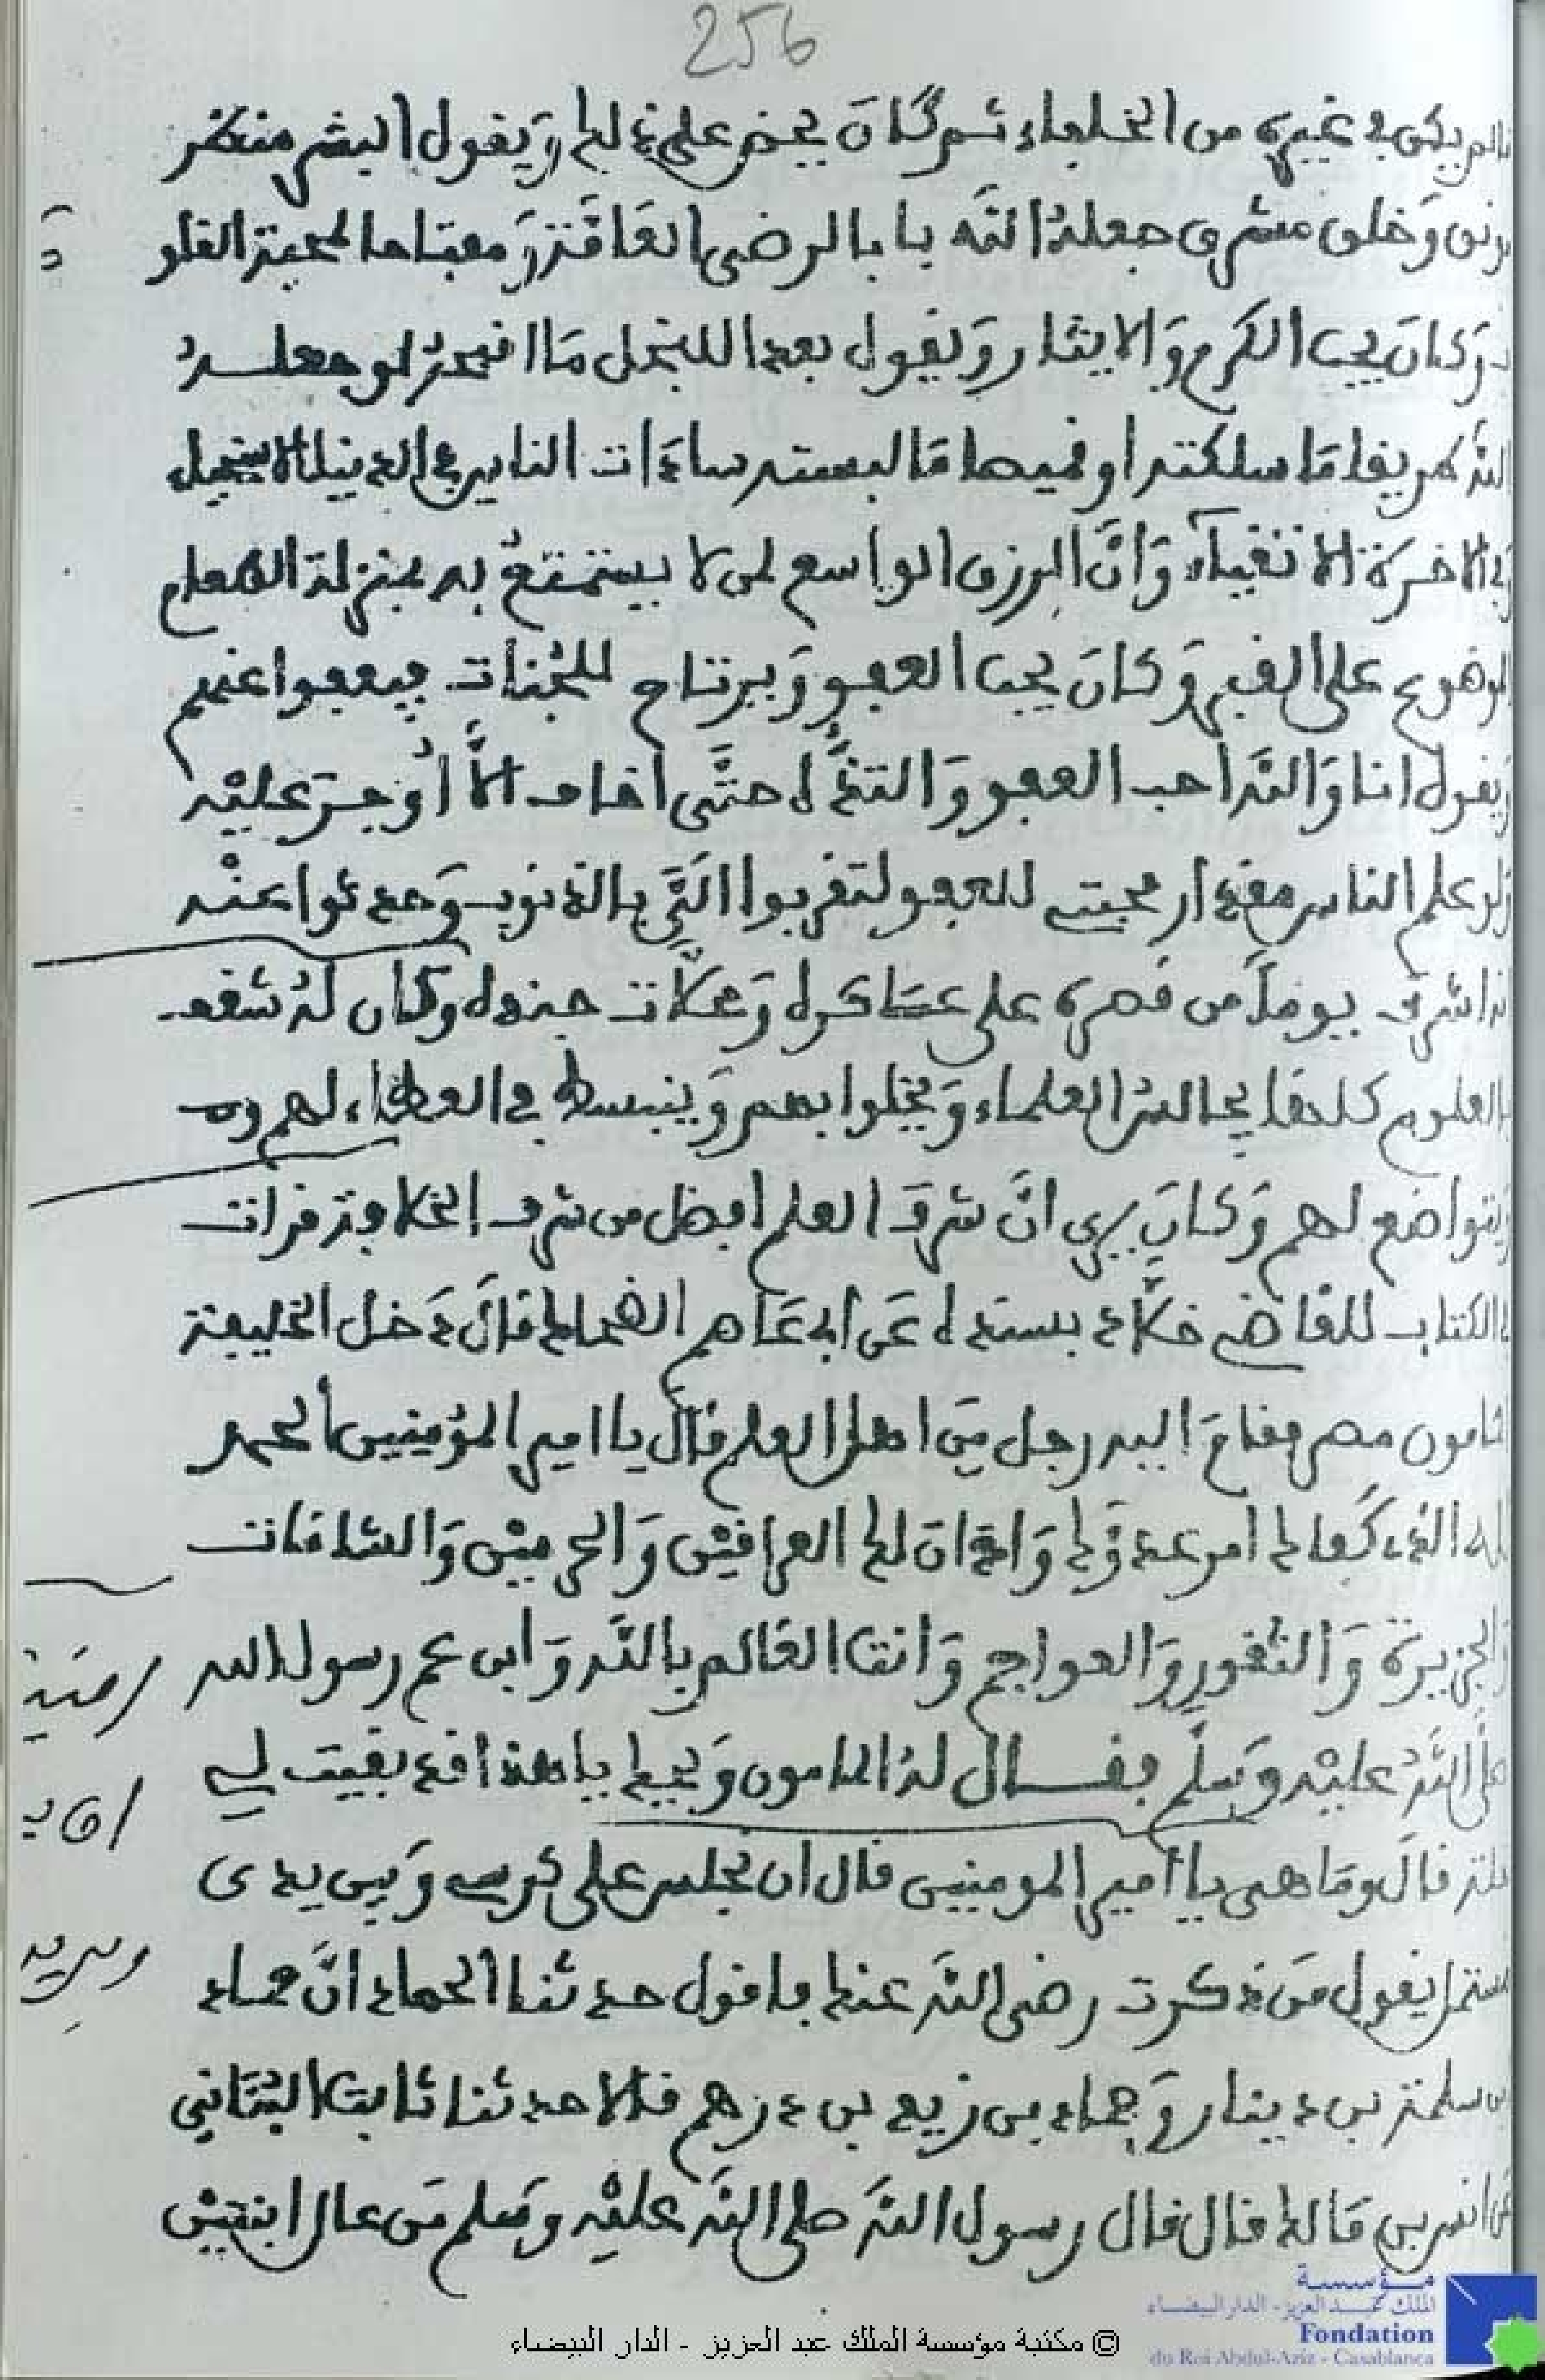 256
ما لم يكن في غيره من الخلفاء ثم كَان يحض على ذلك وَيقول البشر منظر
مونق وَخلق مشرق جعله الله بابا لرضى العَامَّة وَمفتاحا لمحبة القلو
ب وَكانَ يحب الكرم وَالايثار وَيقول بعدا للبخل مَا اقبحه لو جعله
الله طريقا مَا سلكته أو قميصا مَا لبسته سادَات الناس في الدنيا الاسخياء
وفي الاخرة الاتقيآء وَانَّ الرزق الواسع لمن لا يستمتع به بمنزلة الطعام
الموضوع على القبر وَكانَ يحب العفو وَيرتاح للجُنات فيعفوا عنهم
وَيقول انا وَاللَّه احب العفو وَالتذُّ له حتَّى اخاف الَّا أُوجرَ عليْه
وَلو علم الناس مقدار محبتي للعفو لتقربوا الَيَّ بالذنوب وَحدثوا عنْه
انه اشرف يوماً من قصره على عسَاكره وَعلات جنوده وكان لهُ شغف
بالعلوم كلها يجالس العلماء وَيخلوا بهم وَينبسط في العطاء لهم
وَيتواضع لهم وَكانَ يرى انَّ شرفَ العلم افضل من شرف الخلافة قرات
في الكتاب للقاضي خلَّاد بسنده عَن ابي عَاصم الضحاك قالَ دَخل الخليفة
المامون مصر فقامَ اليه رجل مِن اهل العلم فقالَ يا امير المؤمنين ألحمد
لله الذي كَفاك امر عدوِّك وَادَان لك العراقيْن وَالحرميْن وَالشامَات
وَالجزيرة وَالثغور وَالعواصم وَانت العَالم باللَّه وَابن عم رسول الله
صلى اللَّهُ عليْه وَسلَّم فقال لهُ المامون وَيحك يا هذا قد بقيت لي
خلة قالَ ومَا هي يا أمير المومنين قال ان نجلس على كرسي وَبين يدي
مستمل يقول مَن ذكرت رضي اللَّه عنك فاقول حدثنا الحمادانَّ حماد
بن سلمة بن دينار وَحماد بن زيد بن درهم قالا حدثنا ثابت البُنَاني
عَن انس بن مَالك قال قال رسول اللَّه صلى اللَّه عليْه وَسلم مَن عال ابنتيْن
مؤسسة
الملك عبد العزيز - الدار البيضاء
Fondation
du Roi Abdul-Aziz - Casablanca
© مكتبة مؤسسة الملك عبد العزيز - الدار البيضاء